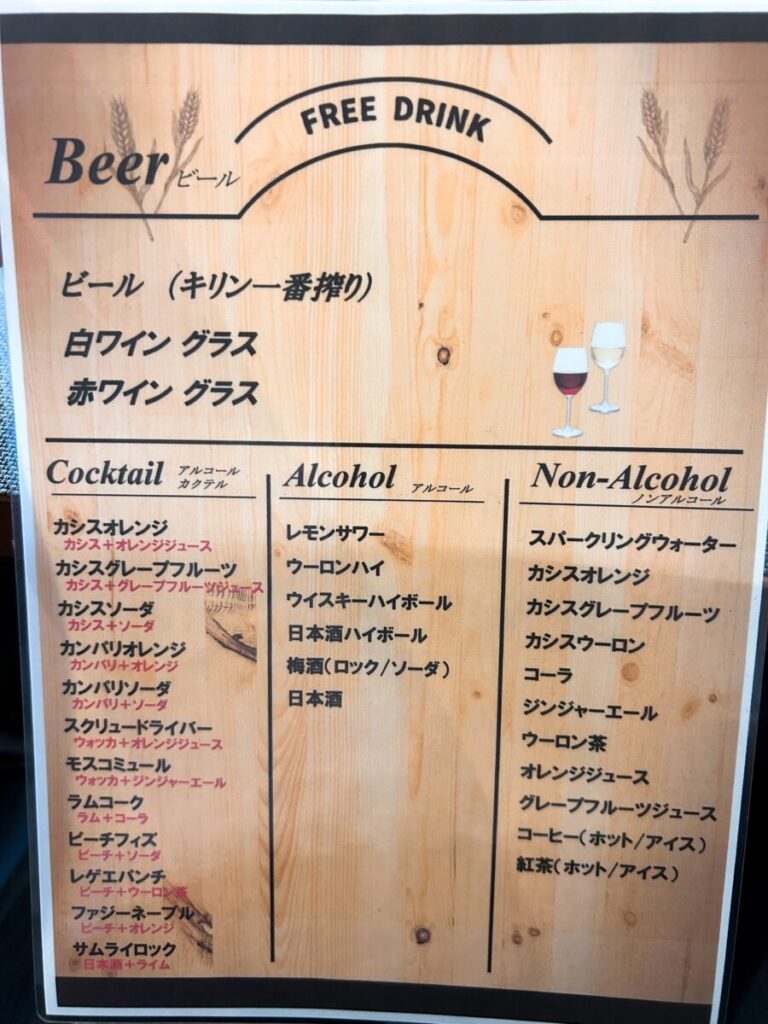 FREE DRINK
Beer ビール
ビール (キリン一番搾り)
白ワイン グラス
赤ワイン グラス
Cocktail アルコール
カクテル
カシスオレンジ
カシス+オレンジジュース
カシスグレープフルーツ
カシス+グレープフルーツジュース
カシスソーダ
カシス+ソーダ
カンパリオレンジ
カンパリ+オレンジ
カンパリソーダ
カンパリ+ソーダ
スクリュードライバー
ウォッカ+オレンジジュース
モスコミュール
ウォッカ+ジンジャーエール
ラムコーク
ラム+コーラ
ピーチフィズ
ピーチ+ソーダ
レゲエパンチ
ピーチ+ウーロン茶
ファジーネーブル
ピーチ+オレンジ
サムライロック
日本酒+ライム
Alcohol アルコール
レモンサワー
ウーロンハイ
ウイスキーハイボール
日本酒ハイボール
梅酒(ロック/ソーダ)
日本酒
Non-Alcohol
ノンアルコール
スパークリングウォーター
カシスオレンジ
カシスグレープフルーツ
カシスウーロン
コーラ
ジンジャーエール
ウーロン茶
オレンジジュース
グレープフルーツジュース
コーヒー(ホット/アイス)
紅茶(ホット/アイス)